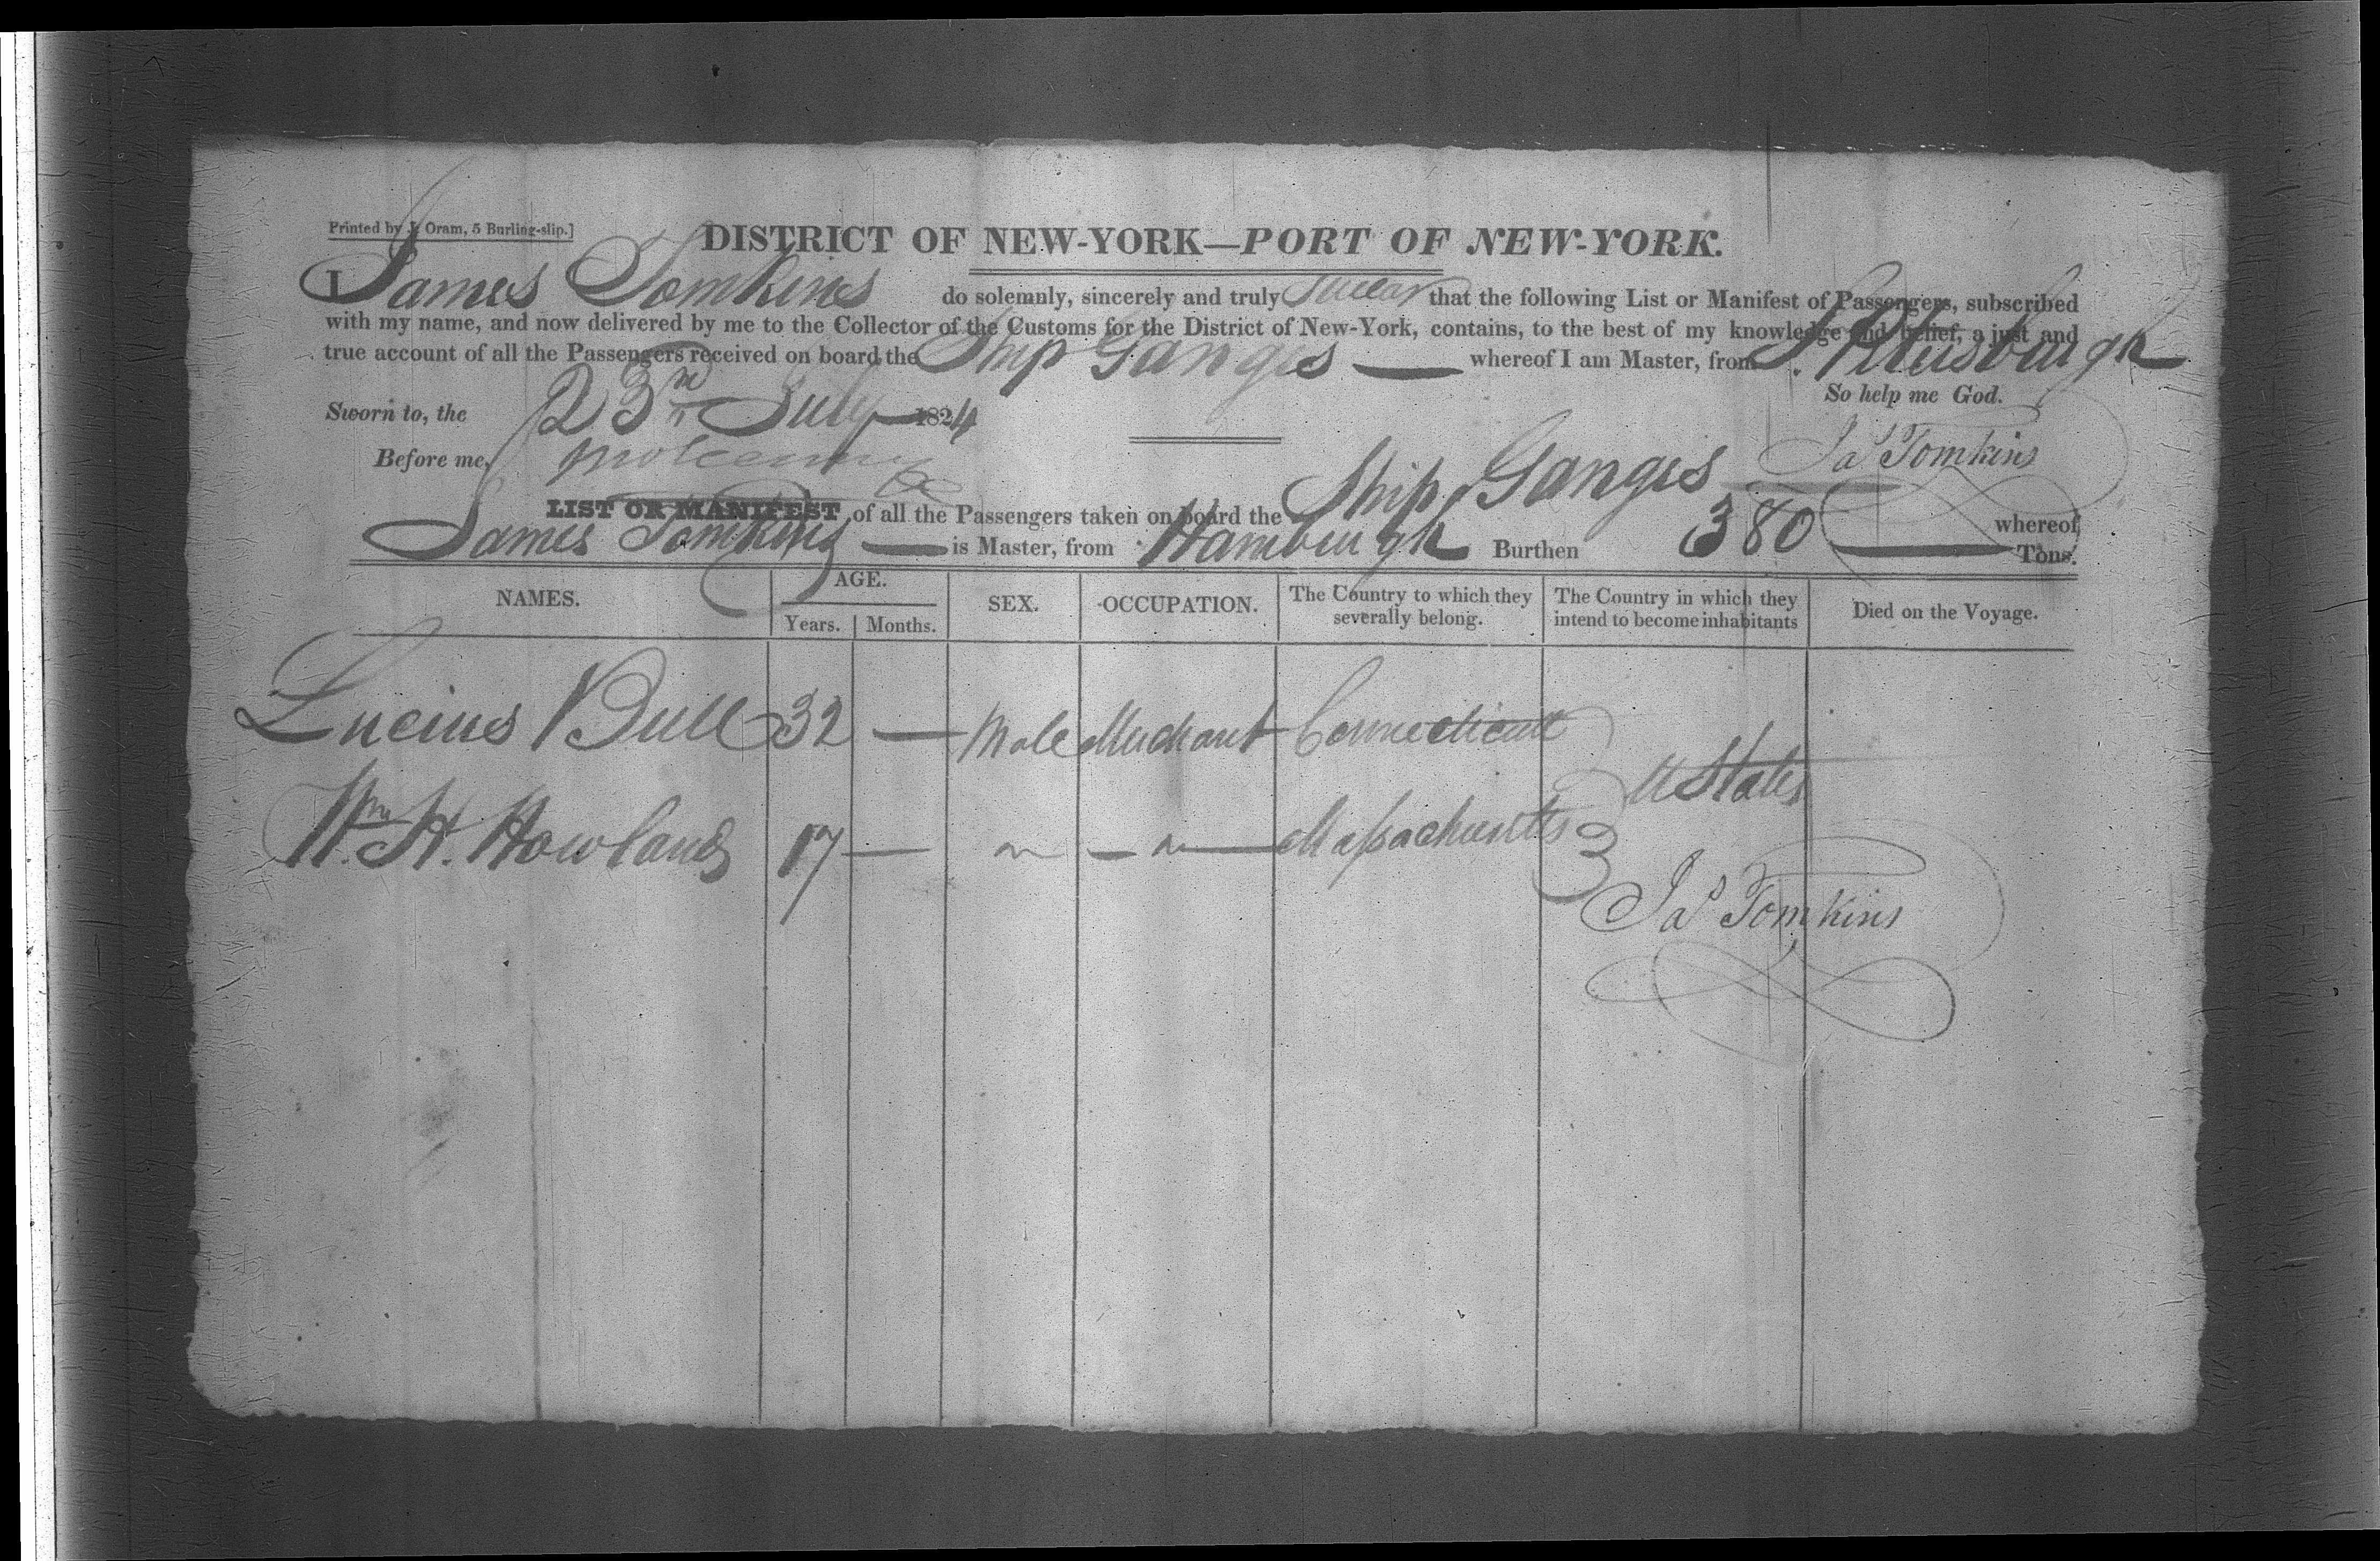 Printed by J. Oram, 5 Burling-slip.]
DISTRICT OF NEW-YORK—PORT OF NEW-YORK.
I James Tomkins do solemnly, sincerely and truly swear that the following List or Manifest of Passengers, subscribed
with my name, and now delivered by me to the Collector of the Customs for the District of New-York, contains, to the best of my knowledge and belief, a just and
true account of all the Passengers received on board the Ship Ganges — whereof I am Master, from St. Petersburgh
So help me God.
Sworn to, the 23rd July 1824
Before me,
Jas Tomkins
LIST OR MANIFEST of all the Passengers taken on board the Ship Ganges whereof
James Tomkins — is Master, from Hamburgh Burthen 380 — Tons.
NAMES. AGE. SEX. OCCUPATION. The Country to which they severally belong. The Country in which they intend to become inhabitants Died on the Voyage.
Years. Months.
Lucius Bull 32 — Male Merchant Connecticutt
U States
Wm H. Howland 17 — " — " — Massachusetts
Jas Tomkins